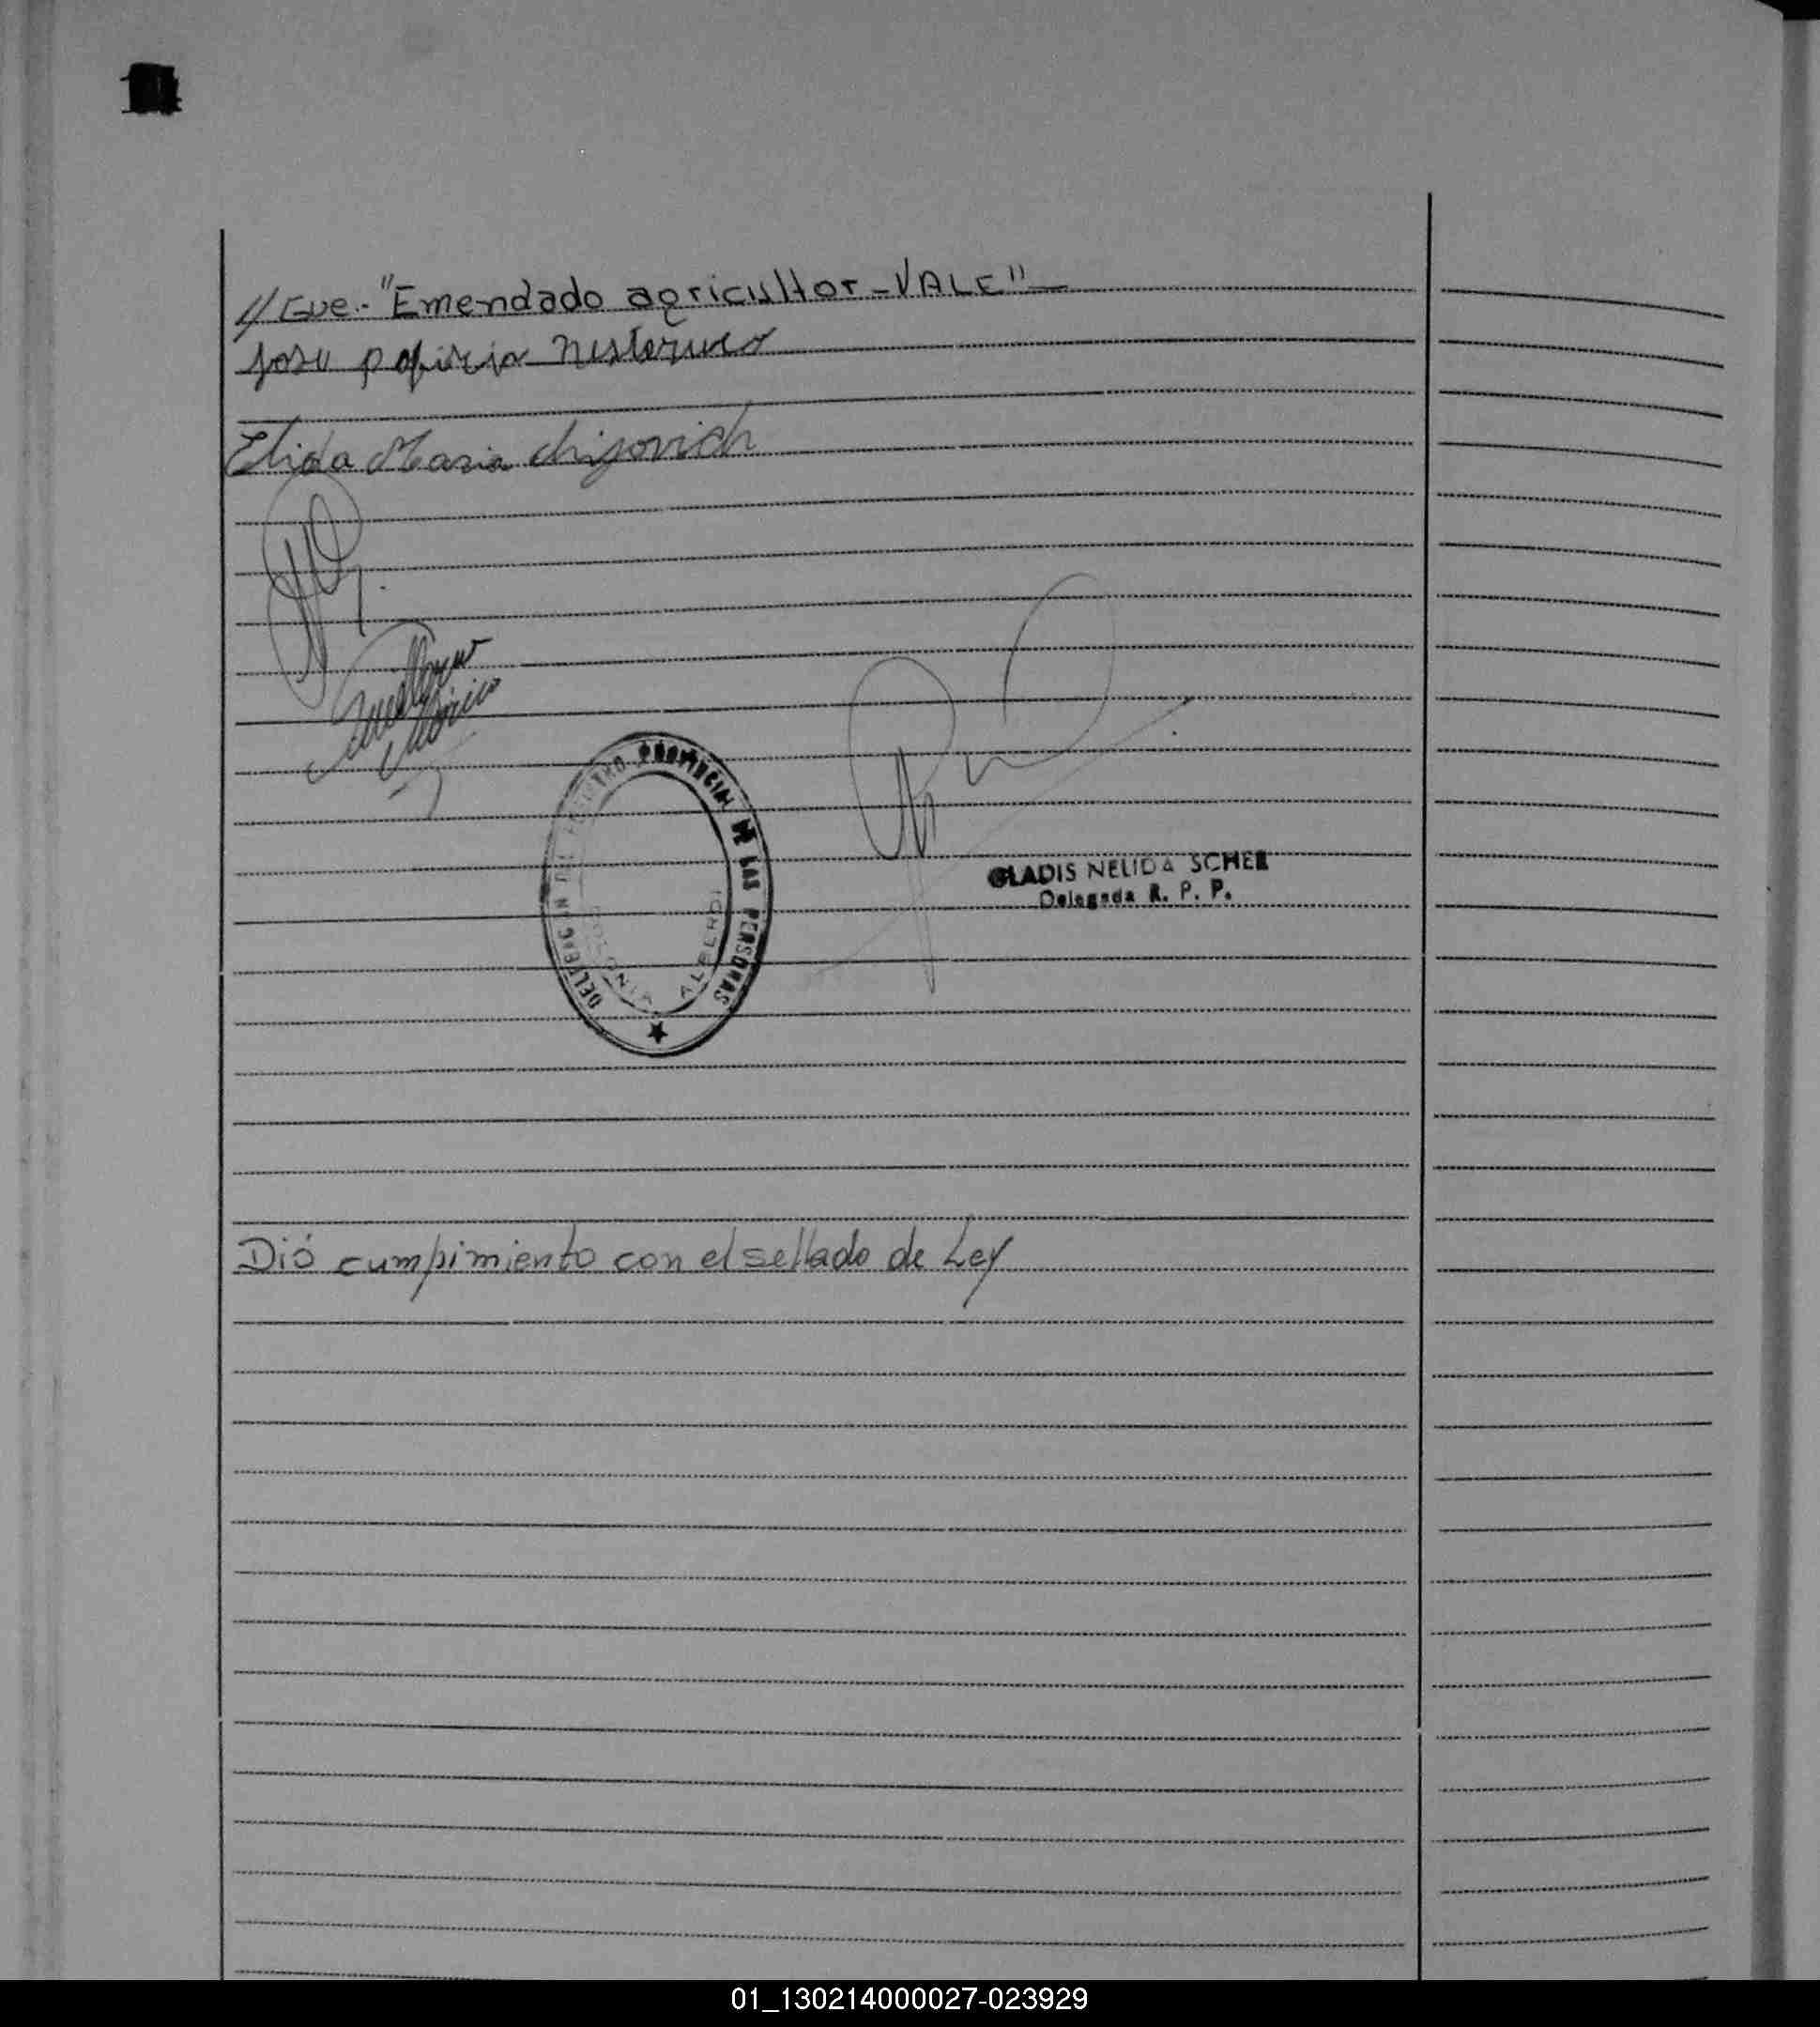 //Gue.- "Emendado agricultor - VALE" —
Elida Maria chijovich
DELEGACION DEL REGISTRO PROVINCIAL DE LAS PERSONAS
COLONIA ALBERDI
GLADIS NELIDA SCHER
Delegada R. P. P.
Dió cumpimiento con el sellado de Ley
01_130214000027-023929